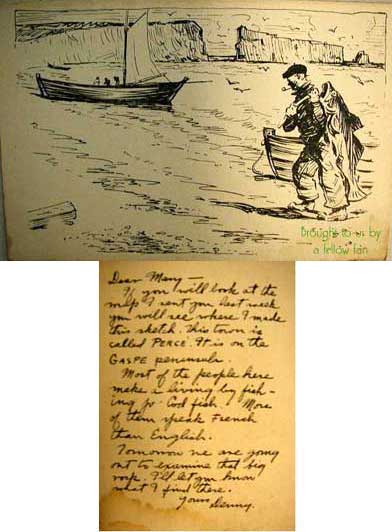 Brought to us by
a fellow fan
Dear Mary —
If you will look at the
map I sent you last week
you will see where I made
this sketch. This town is
called PERCÉ. It is on the
GASPE peninsula.
Most of the people here
make a living by fish-
ing for Cod fish. More
of them speak French
than English.
Tomorrow we are going
out to examine that big
rock. I'll let you know
what I find there.
Yours